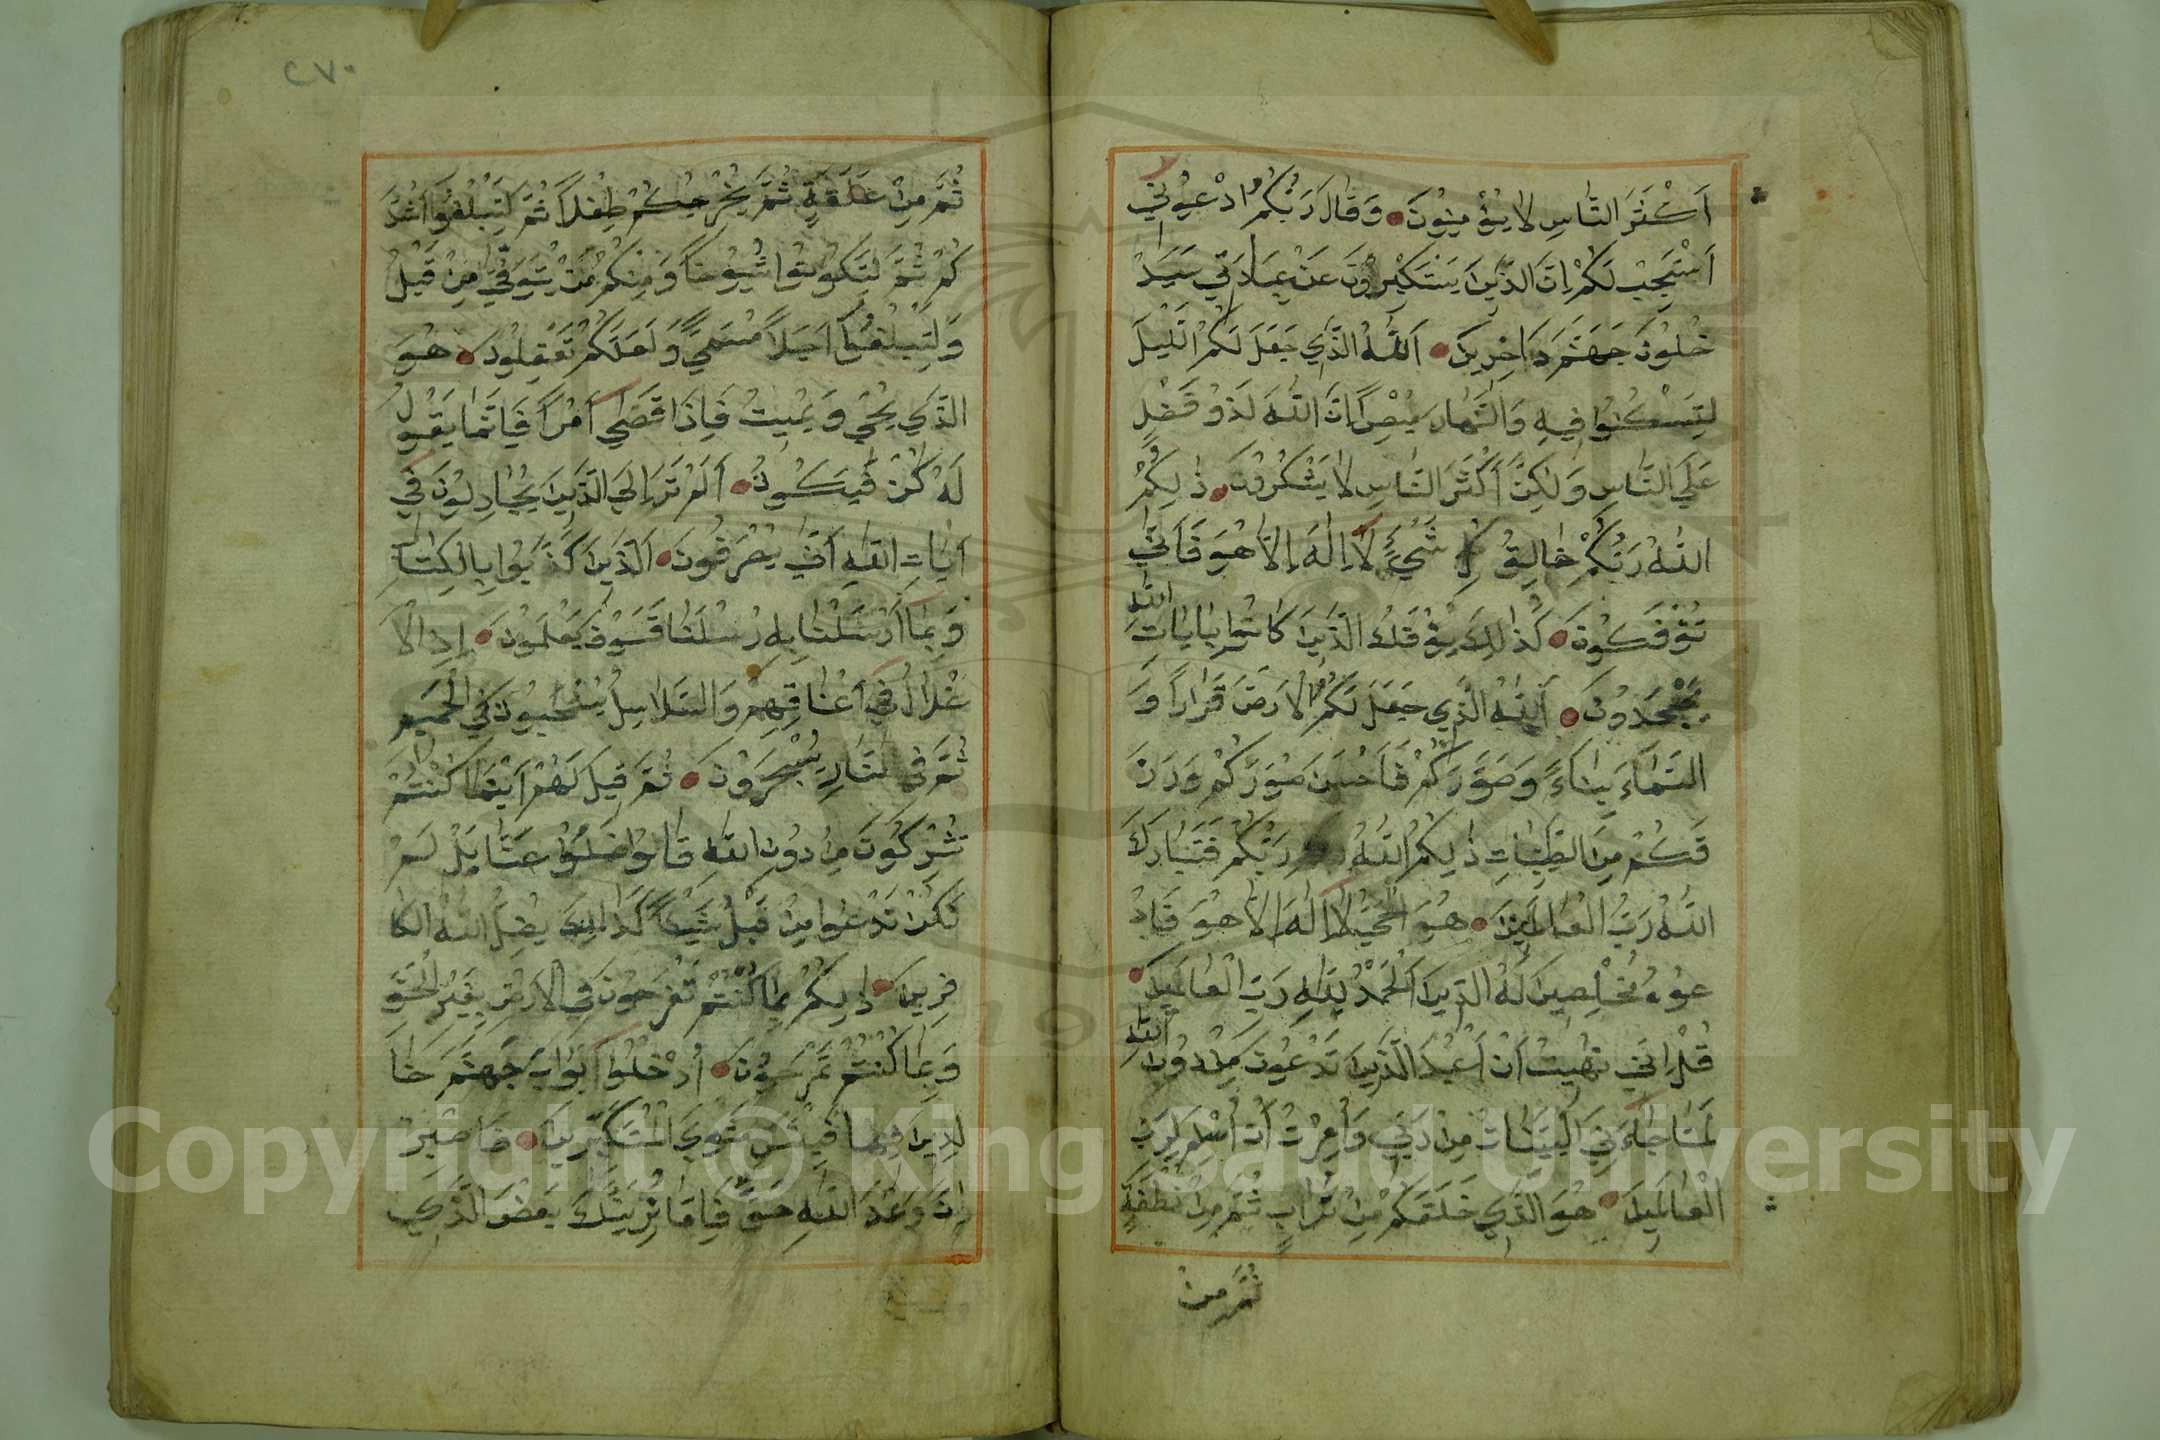 أَكْثَرَ النَّاسِ لَا يُؤْمِنُونَ وَقَالَ رَبُّكُمُ ادْعُونِي
أَسْتَجِبْ لَكُمْ إِنَّ الَّذِينَ يَسْتَكْبِرُونَ عَنْ عِبَادَتِي سَيَدْ
خُلُونَ جَهَنَّمَ دَاخِرِينَ اَللّٰهُ الَّذِي جَعَلَ لَكُمُ الَّيْلَ
لِتَسْكُنُوا فِيهِ وَالنَّهَارَ مُبْصِرًا إِنَّ اللّٰهَ لَذُو فَضْلٍ
عَلَى النَّاسِ وَلٰكِنَّ أَكْثَرَ النَّاسِ لَا يَشْكُرُونَ ذٰلِكُمُ
اللّٰهُ رَبُّكُمْ خَالِقُ كُلِّ شَيْءٍ لَا إِلٰهَ إِلَّا هُوَ فَأَنّٰى
تُؤْفَكُونَ كَذٰلِكَ يُؤْفَكُ الَّذِينَ كَانُوا بِاٰيَاتِ اللّٰهِ
يَجْحَدُونَ اَللّٰهُ الَّذِي جَعَلَ لَكُمُ الْأَرْضَ قَرَارًا وَ
السَّمَاءَ بِنَاءً وَصَوَّرَكُمْ فَأَحْسَنَ صُوَرَكُمْ وَرَزَ
قَكُمْ مِنَ الطَّيِّبَاتِ ذٰلِكُمُ اللّٰهُ رَبُّكُمْ فَتَبَارَكَ
اللّٰهُ رَبُّ الْعَالَمِينَ هُوَ الْحَيُّ لَا إِلٰهَ إِلَّا هُوَ فَادْ
عُوهُ مُخْلِصِينَ لَهُ الدِّينَ اَلْحَمْدُ لِلّٰهِ رَبِّ الْعَالَمِينَ
قُلْ إِنِّي نُهِيتُ أَنْ أَعْبُدَ الَّذِينَ تَدْعُونَ مِنْ دُونِ اللّٰهِ
لَمَّا جَاءَنِيَ الْبَيِّنَاتُ مِنْ رَبِّي وَأُمِرْتُ أَنْ أُسْلِمَ لِرَبِّ
الْعَالَمِينَ هُوَ الَّذِي خَلَقَكُمْ مِنْ تُرَابٍ ثُمَّ مِنْ نُطْفَةٍ
ثُمَّ مِنْ
٢٧٠
ثُمَّ مِنْ عَلَقَةٍ ثُمَّ يُخْرِجُكُمْ طِفْلًا ثُمَّ لِتَبْلُغُوا أَشُدَّ
كُمْ ثُمَّ لِتَكُونُوا شُيُوخًا وَمِنْكُمْ مَنْ يُتَوَفّٰى مِنْ قَبْلُ
وَلِتَبْلُغُوا أَجَلًا مُسَمًّى وَلَعَلَّكُمْ تَعْقِلُونَ هُوَ
الَّذِي يُحْيِي وَيُمِيتُ فَإِذَا قَضٰى أَمْرًا فَإِنَّمَا يَقُولُ
لَهُ كُنْ فَيَكُونُ أَلَمْ تَرَ إِلَى الَّذِينَ يُجَادِلُونَ فِي
اٰيَاتِ اللّٰهِ أَنّٰى يُصْرَفُونَ اَلَّذِينَ كَذَّبُوا بِالْكِتَابِ
وَبِمَا أَرْسَلْنَا بِهِ رُسُلَنَا فَسَوْفَ يَعْلَمُونَ إِذِ الْأَ
غْلَالُ فِي أَعْنَاقِهِمْ وَالسَّلَاسِلُ يُسْحَبُونَ فِي الْحَمِيمِ
ثُمَّ فِي النَّارِ يُسْجَرُونَ ثُمَّ قِيلَ لَهُمْ أَيْنَمَا كُنْتُمْ
تُشْرِكُونَ مِنْ دُونِ اللّٰهِ قَالُوا ضَلُّوا عَنَّا بَلْ لَمْ
نَكُنْ نَدْعُوا مِنْ قَبْلُ شَيْئًا كَذٰلِكَ يُضِلُّ اللّٰهُ الْكَا
فِرِينَ ذٰلِكُمْ بِمَا كُنْتُمْ تَفْرَحُونَ فِي الْأَرْضِ بِغَيْرِ الْحَقِّ
وَبِمَا كُنْتُمْ تَمْرَحُونَ اُدْخُلُوا أَبْوَابَ جَهَنَّمَ خَا
لِدِينَ فِيهَا فَبِئْسَ مَثْوَى الْمُتَكَبِّرِينَ فَاصْبِرْ
إِنَّ وَعْدَ اللّٰهِ حَقٌّ فَإِمَّا نُرِيَنَّكَ بَعْضَ الَّذِي
Copyright © King Saud University